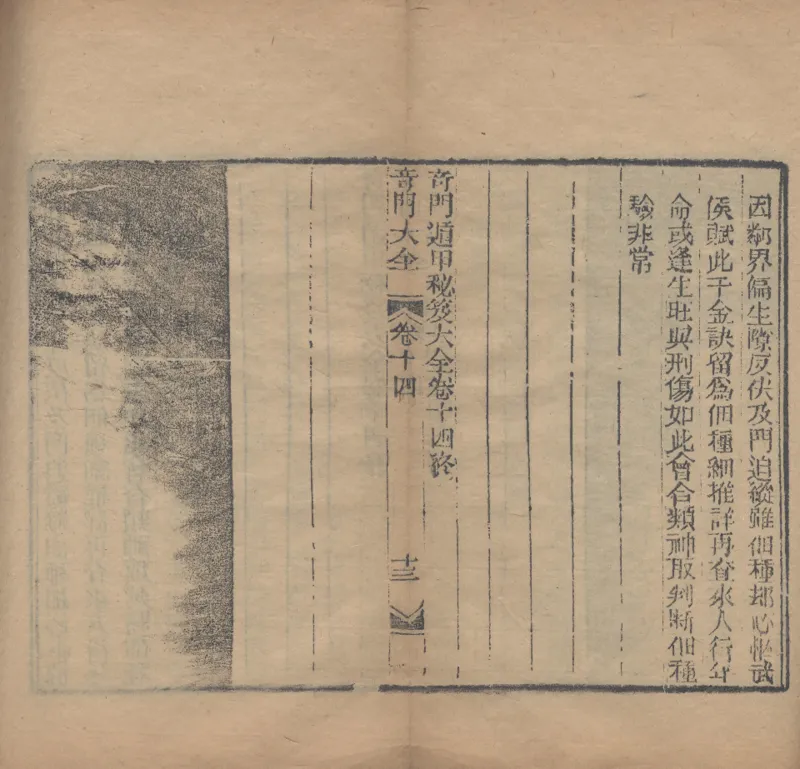 因鄰界偏生隙反伏及門迫縱雖佃種却心懷武
侯賦此千金訣留為佃種細推詳再查來人行年
命或逢生旺與刑傷如此會合類神取判斷佃種
驗非常
奇門遁甲秘笈大全卷十四終
奇門大全
卷十四
十三